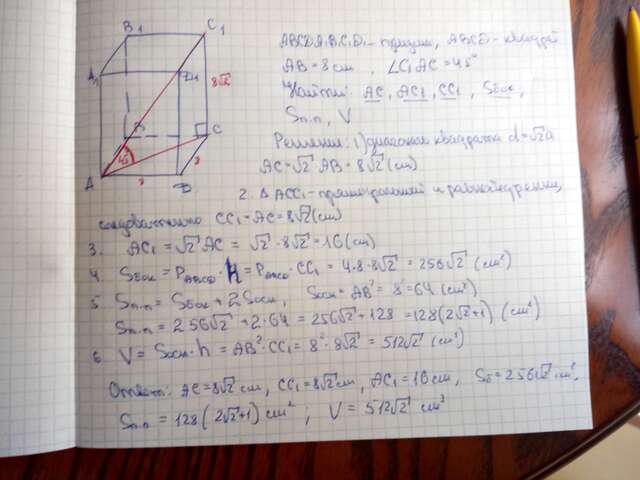 ABCDA₁B₁C₁D₁ - призма, ABCD - квадрат
AB = 8 см, ∠C₁AC = 45°
Найти: AC, AC₁, CC₁, Sбок,
Sп.п, V
Решение: 1) диагональ квадрата d = √2a
AC = √2 AB = 8√2 (см)
2. Δ ACC₁ - прямоугольный и равнобедренный,
следовательно CC₁ = AC = 8√2 (см)
3. AC₁ = √2 AC = √2 · 8√2 = 16 (см)
4. Sбок = Pосн · h = Pосн · CC₁ = 4·8·8√2 = 256√2 (см²)
5. Sп.п = Sбок + 2Sосн, Sосн = AB² = 8² = 64 (см²)
Sп.п = 256√2 + 2·64 = 256√2 + 128 = 128(2√2+1) (см²)
6. V = Sосн · h = AB² · CC₁ = 8² · 8√2 = 512√2 (см³)
Ответ: AC = 8√2 см, CC₁ = 8√2 см, AC₁ = 16 см, Sб = 256√2 см²,
Sп.п = 128(2√2+1) см², V = 512√2 см³
A₁
B₁
C₁
D₁
8√2
A
45°
B
C